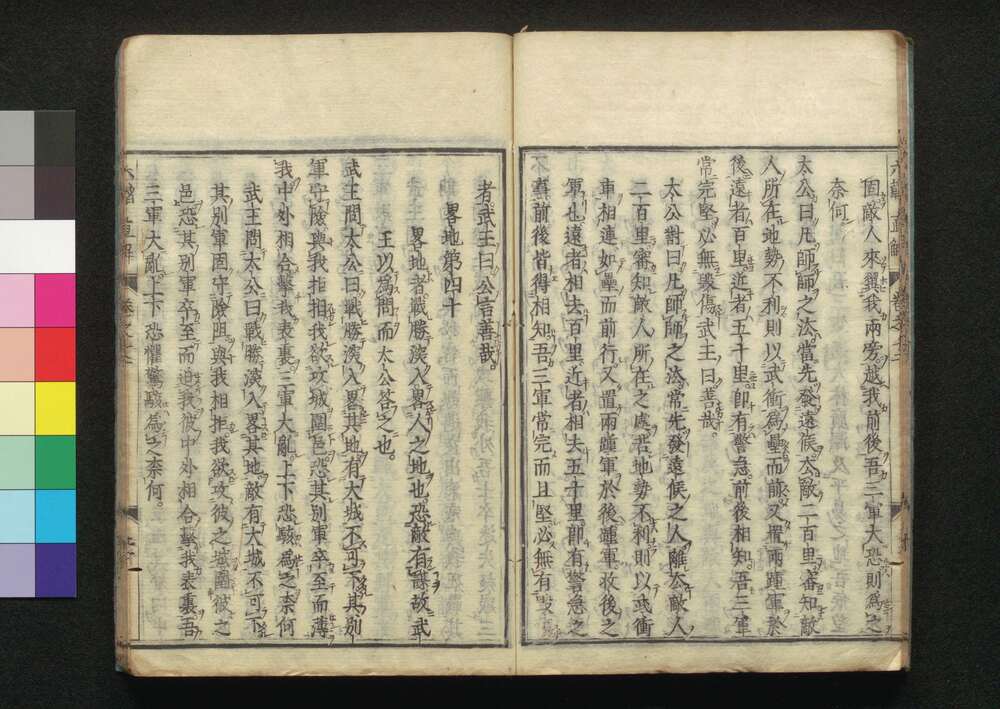 固敵人來翼我兩旁越我前後吾三軍大恐則爲之
奈何
太公曰凡帥師之法當先發遠候去敵二百里審知敵
人所在地勢不利則以武衝爲壘而前又置兩踵軍於
後遠者百里近者五十里卽有警急前後相知吾三軍
常完堅必無毀傷武王曰善哉
太公對曰凡帥師之法常先發遠候之人離去敵人
二百里審知敵人所在之處若地勢不利則以武衝
車相連如壘而前行又置兩踵軍於後踵軍收後之
軍也遠者相去百里近者相去五十里卽有警急之
前後皆得相知吾三軍常完而且堅必無有
者武王曰公言善哉
畧地第四十
畧地者戰勝深入畧人之地也恐敵有謀故武
王以爲問而太公答之也
武王問太公曰戰勝深入畧其地有大城不可下其別
軍守險與我相拒我欲攻城圍邑恐其別軍卒至而薄
我中外相合擊我表裏三軍大亂上下恐駭爲之奈何
武王問太公曰戰勝深入畧其地敵有大城不可下
其別軍固守險阻與我相拒我欲攻彼之城圍彼之
邑恐其別軍卒至而迫我彼中外相合擊我表裏吾
三軍大亂上下恐懼驚駭爲之奈何
六韜直解 卷之